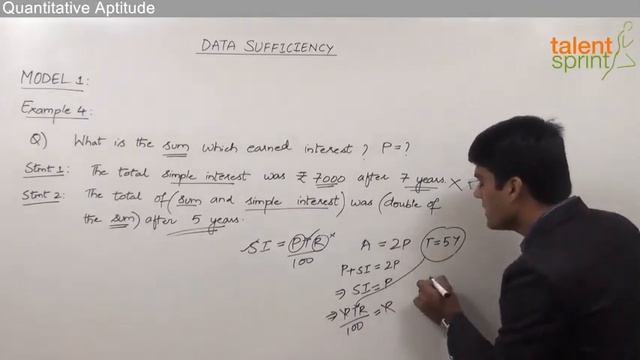 Quantitative Aptitude
talent
sprint
DATA SUFFICIENCY
MODEL 1:
Example 4:
Q) What is the sum which earned interest ? P=?
Stmt 1: The total simple interest was ₹ 7000 after 7 years. X
Stmt 2: The total of (sum and simple interest) was (double of
the sum) after 5 years.
SI = PTR
100
A = 2P
T=5Y
P+SI=2P
⇒ SI=P
⇒ PTR = P
100